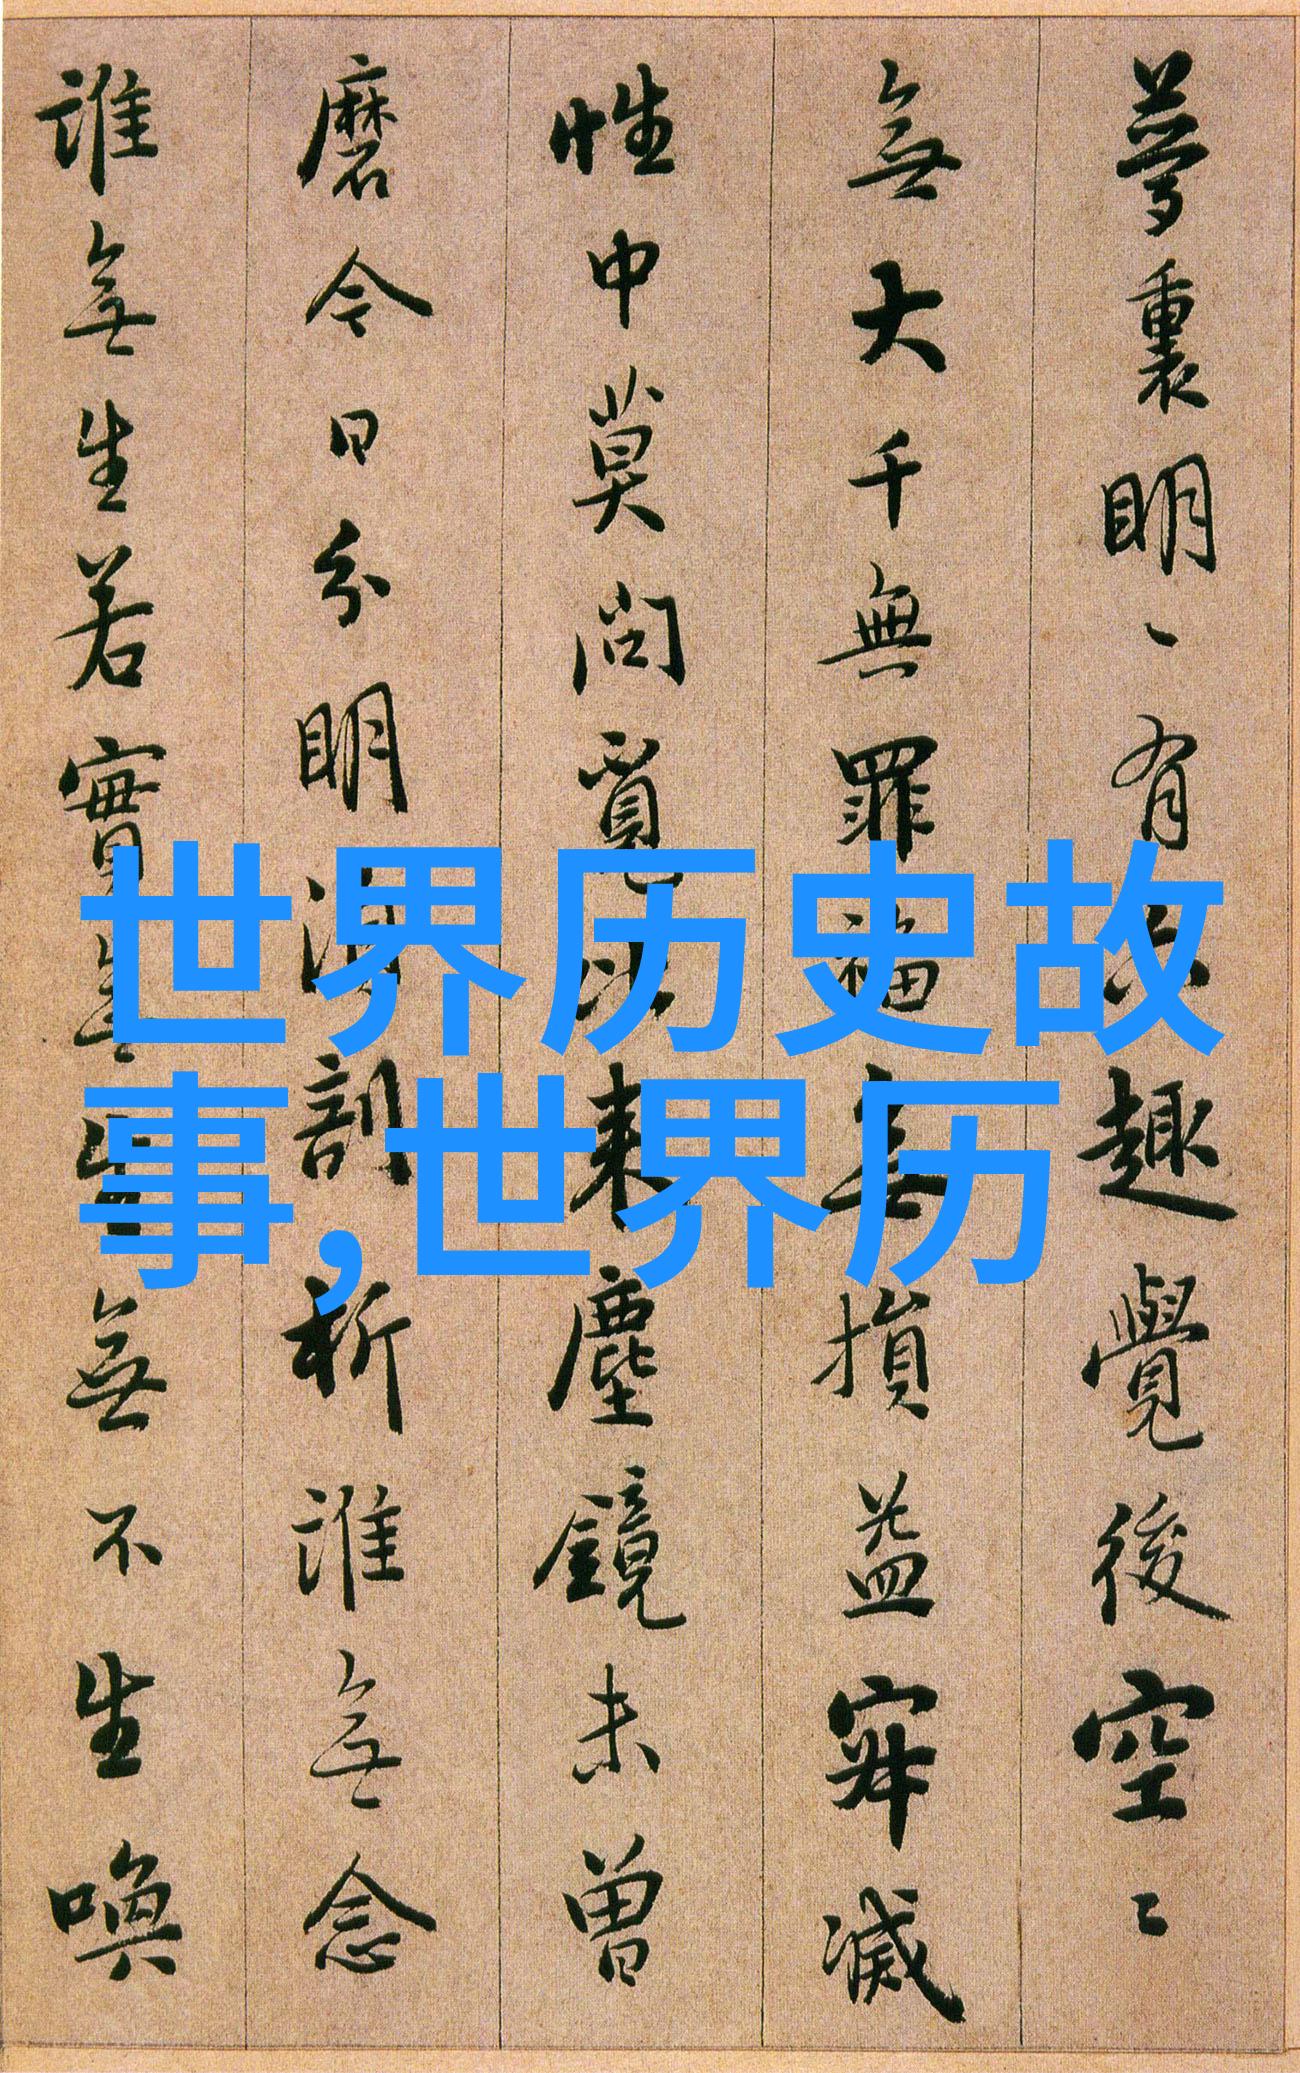 夢裏明丶有六趣覺後空〻
無大千無罪福無損益寂滅
性中莫問覓比來塵鏡未曾
磨今日分明須剖析誰無念
誰無生若實無生無不生喚
世界历史故
事,世界历